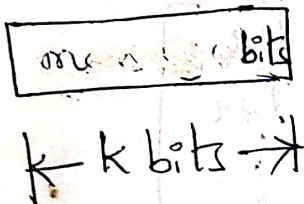 bits
k bits